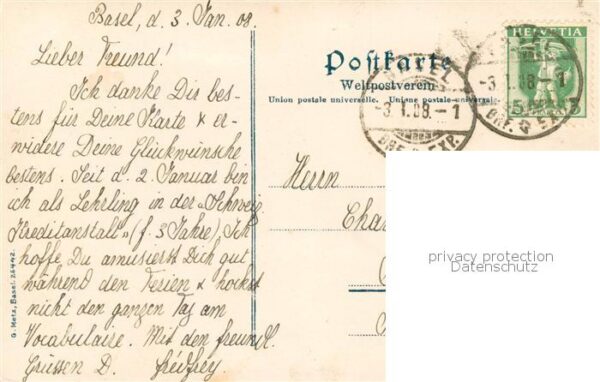 Basel, d. 3. Jan. 08.
Lieber Freund!
Ich danke Dir bes-
tens für Deine Karte & er-
widere Deine Glückwünsche
bestens. Seit d. 2. Januar bin
ich als Lehrling in der «Schweiz.
Kreditanstalt» (f. 3 Jahre). Ich
hoffe, Du amusierst Dich gut
während den Ferien & hockst
nicht den ganzen Tag am
Vocabulaire. Mit den freundl.
Grüssen D.
G. Metz, Basel. 26442.
Postkarte
Weltpostverein
Union postale universelle. Unione postale universale.
Herrn
Char
HELVETIA
5
BASEL
-3.1.08.-1
BRF. & EXP.
-3.1.08.-1
BRF. & EXP.
privacy protection
Datenschutz